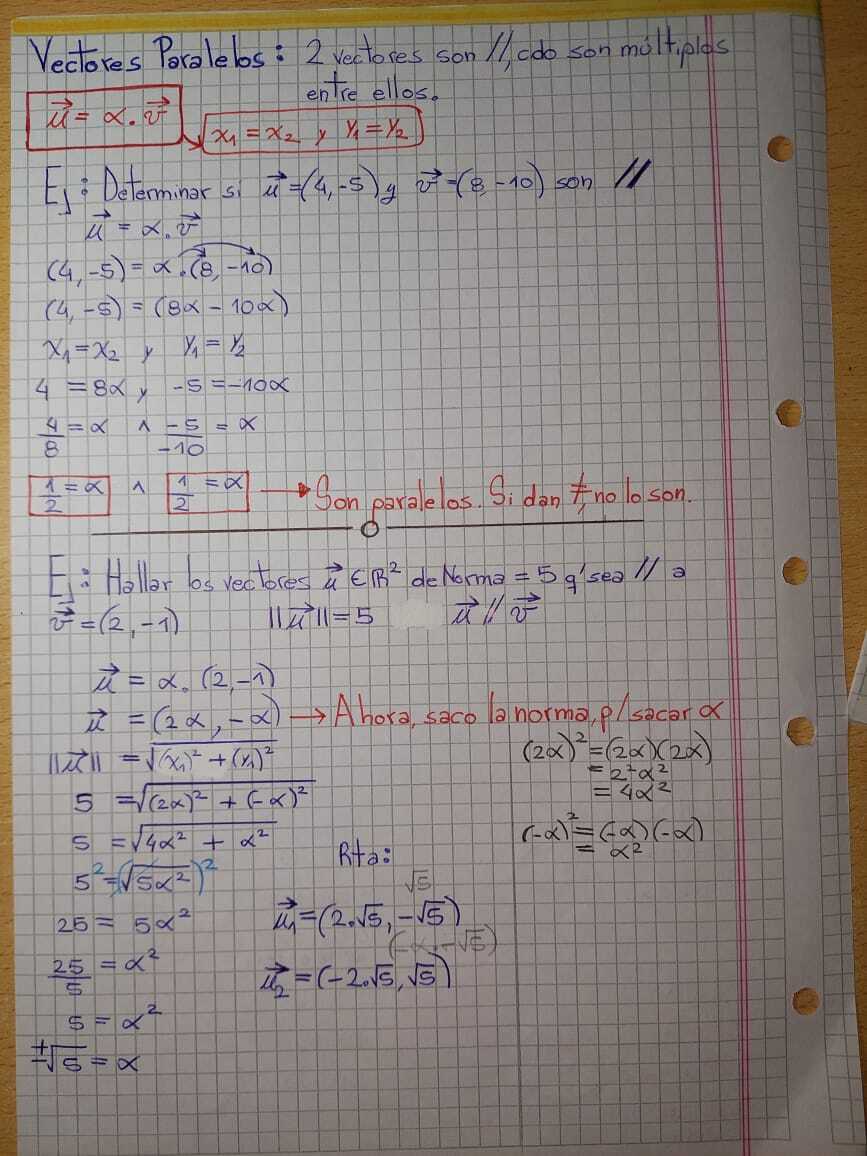 Vectores Paralelos: 2 vectores son //, cdo son múltiplos
entre ellos.
u⃗ = α . v⃗
x₁ = x₂ y y₁ = y₂
Ej: Determinar si u⃗ = (4, -5) y v⃗ = (8, -10) son //
u⃗ = α . v⃗
(4, -5) = α . (8, -10)
(4, -5) = (8α - 10α)
x₁ = x₂ y y₁ = y₂
4 = 8α y -5 = -10α
4/8 = α ∧ -5/-10 = α
1/2 = α ∧ 1/2 = α → Son paralelos. Si dan ≠, no lo son.
Ej: Hallar los vectores u⃗ ∈ ℝ² de Norma = 5 q' sea // a
v⃗ = (2, -1) ||u⃗|| = 5 u⃗ // v⃗
u⃗ = α . (2, -1)
u⃗ = (2α, -α) → Ahora, saco la norma, p/sacar α
||u⃗|| = √((x₁)² + (y₁)²)
5 = √((2α)² + (-α)²)
5 = √(4α² + α²)
5² = (√(5α²))²
25 = 5α²
25/5 = α²
5 = α²
±√5 = α
(2α)² = (2α)(2α)
= 2²α²
= 4α²
(-α)² = (-α)(-α)
= α²
Rta:
√5
u⃗₁ = (2.√5, -√5)
u⃗₂ = (-2.√5, √5)